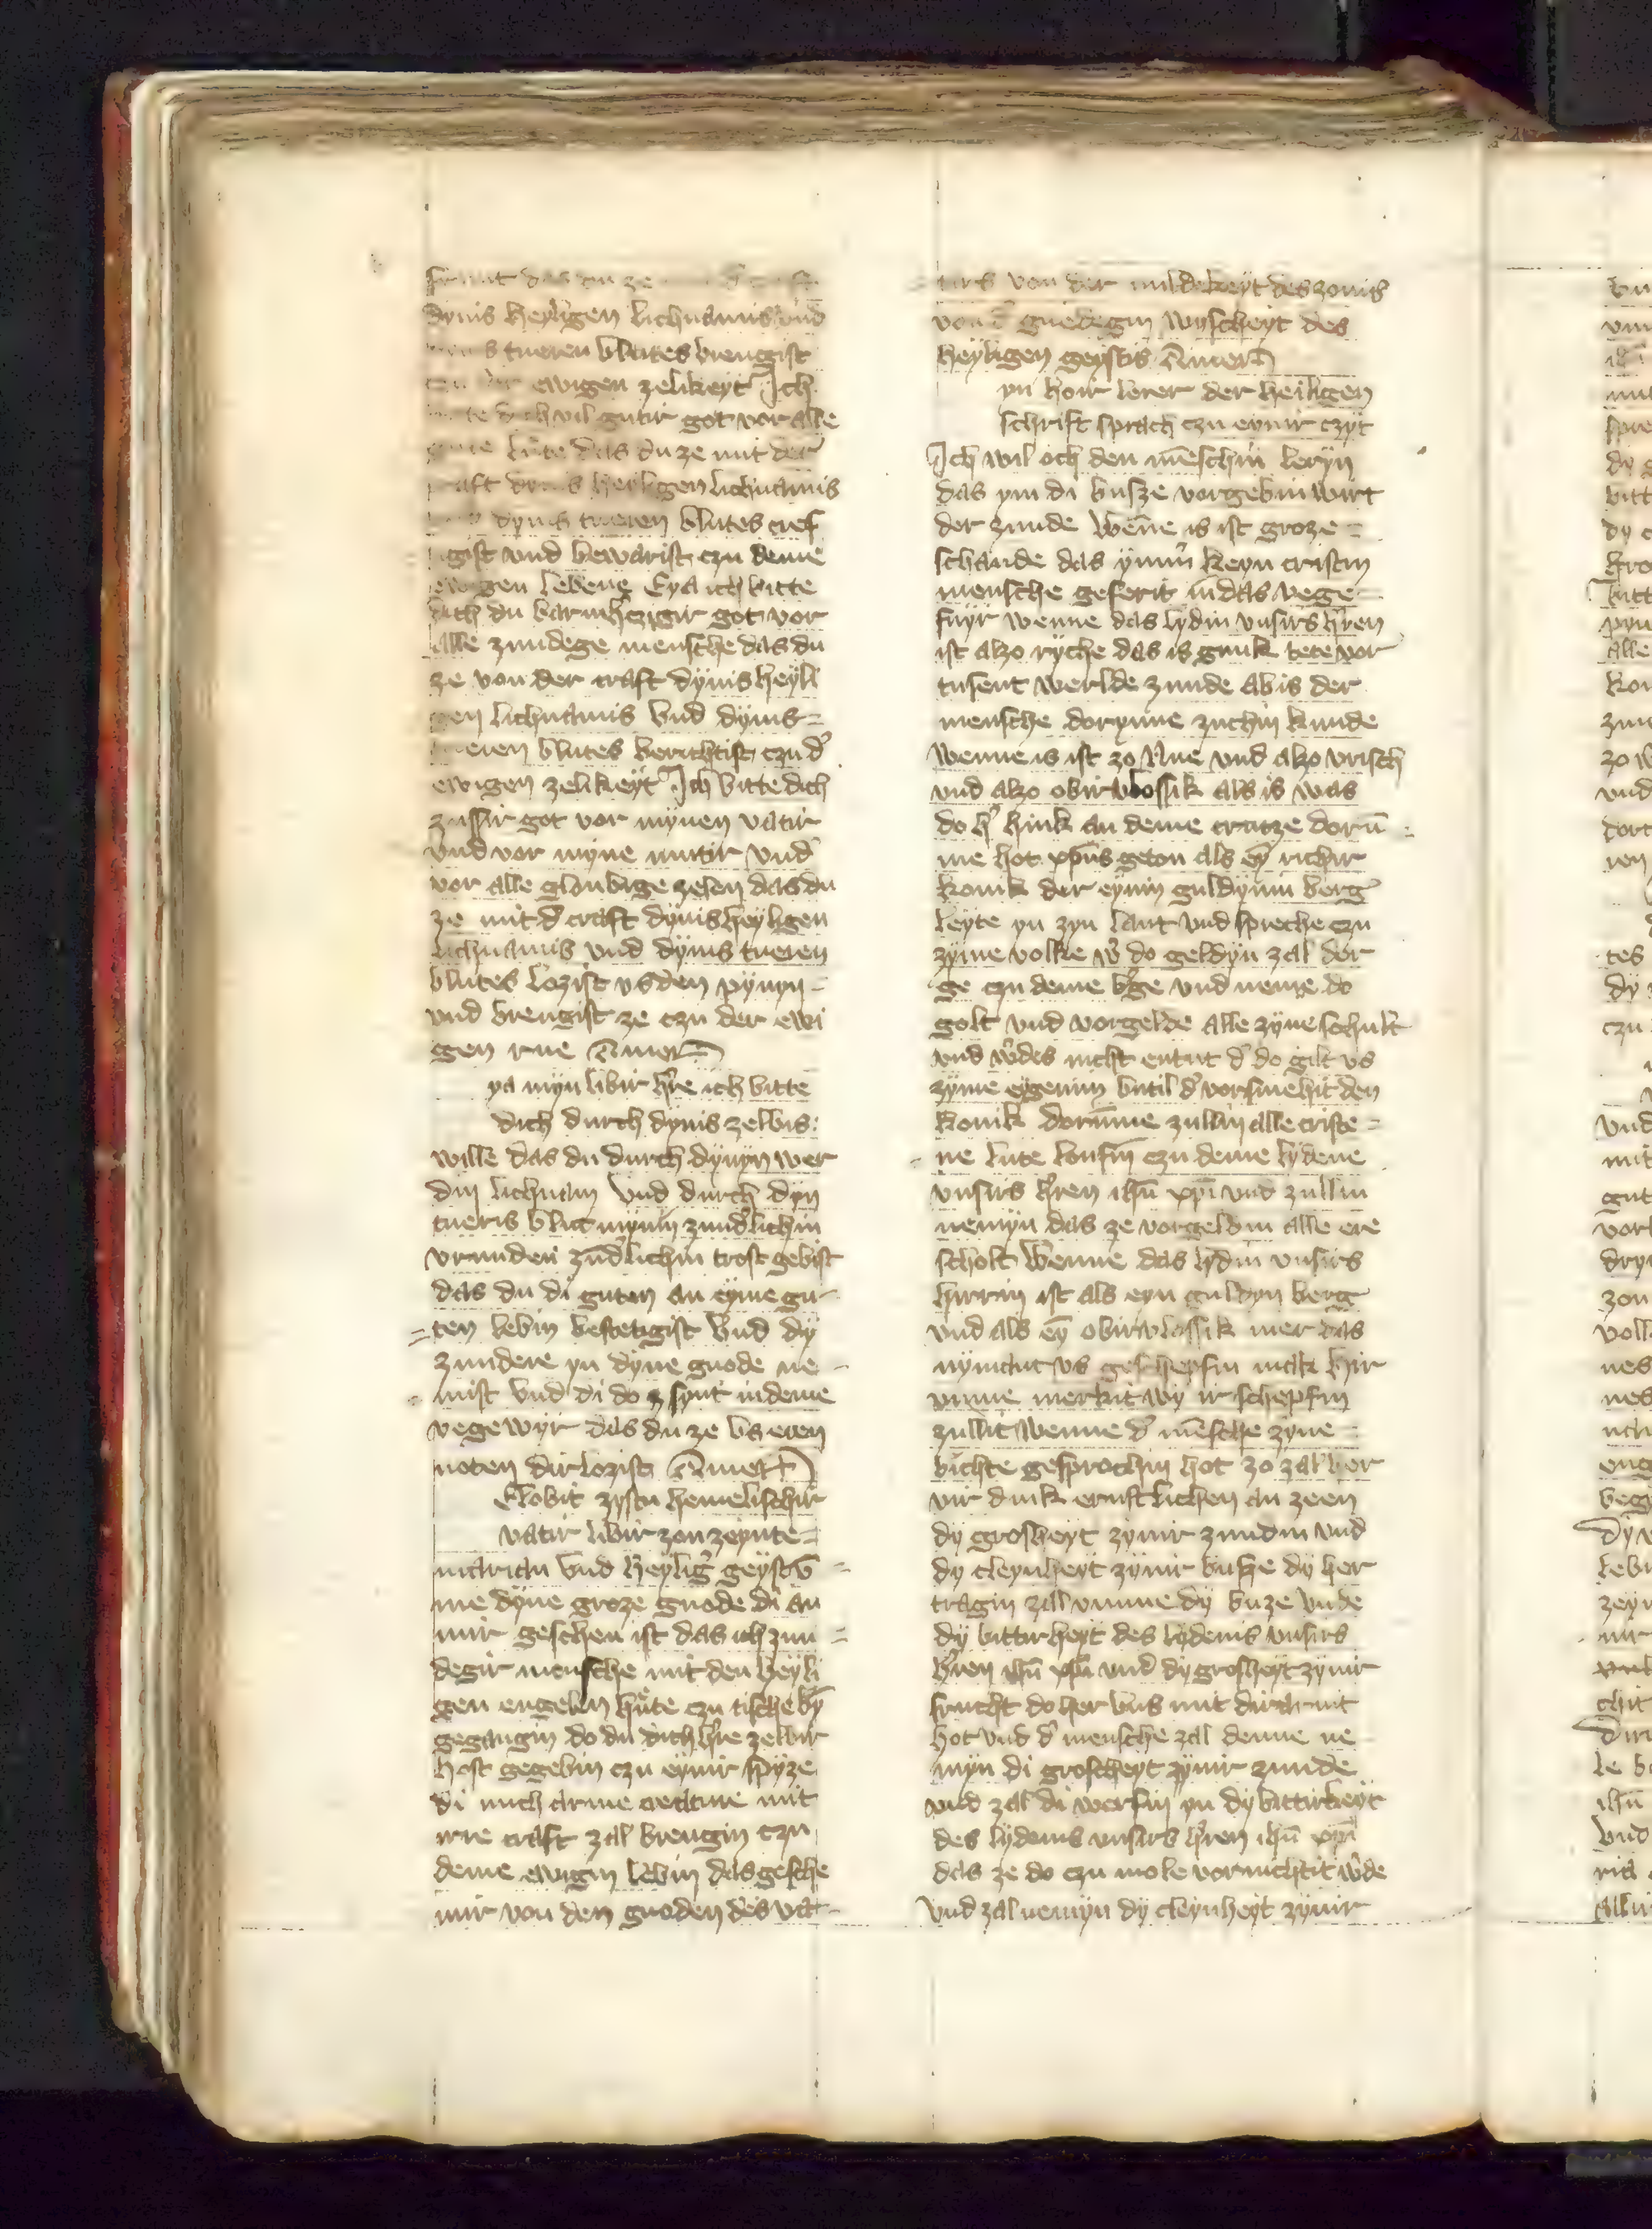 dynis heyligen lichnamis vnd
tueren blutes brengist
ewigen zelikeyt Ich
dich vil gutir got vor alle
lute das du ze mit der
craft dynis heiligen lichnamis
dynis tueren blutes cref
gist vnd bewarist czu deme
ewigen lebene Eya ich bitte
dich du barmhczigir got vor
alle zundege mensche das du
ze von der craft dynis heyli
gen lichnamis vnd dynis =
tueren blutes berichtist czu d̕
ewigen zelikeyt Ich bitte dich
zussir got vor mynen vatir
vnd vor myne mutir vnd
vor alle gloubige zelen das du
ze mit d̕ craft dynis heyligen
lichnamis vnd dynis tueren
blutes lozist vs den pynyn =
vnd brengist ze czu der ewi
gen rue Amen
ya myn libir h̕re ich bitte
dich durch dynis zelbis
wille das du durch dynyn wer
din lichnam vnd durch dyn
tueris blut mynin zund̕lichin
vrunden zūd̕lichin trost gebist
das du di guten an eyme gu-
=ten lebin bestetigist vnd dy
zundere yn dyne gnode ne -
mist vnd di do synt in deme
vegewyr das du ze vs eren
noten dirlozist Amen
Elobit zystu hemelischir
vatir libir zon zeynte =
marian vnd heylig̕ geyst v̄ =
me dyne groze gnode di an
mir geschen ist das ich zun =
degir mensche mit den heyli
gen engelin hute czu tische by̅
gegangin do du dich h̕re zelbir
host gegebin czu eynir spyze
di mich arme creature mit
irre craft zal brengin czu
deme ewigin lebin das gesche
mir von den gnoden des vat-
tirs von der mildekeyt des zonis
von d̕ gnedegin wyscheyt des
heyligen geystis Amen
yn hoir lerer der heiligen
schrift sprach czu eynir czyt
Ich wil och den mēschin leryn
das ym di busze vorgebin wirt
der zunde wēne is ist groze =
schande das ymm̕ keyn cristin
mensche geferit in das vege =
fuyr wenne das lydin vnsirs h̕ren
ist alzo ryche das is gnuk tete vor
tusent werlde zunde ab is der
mensche dorynne zuchin kunde
wenne is ist zo nue vnd alzo vrisch
vnd alzo obirvlossik als is was
do h̕ hink an deme cruze dorū
me hot xp̄us geton als eȳ richir
konik der eynin guldynin berg
leyte yn zyn lant vnd spreche czu
zyme volke w̕ do geldyn zal der
ge czu deme b̕ge vnd neme do
golt vnd vorgelde alle zyne schult
vnd w̕ des nicht entut d̕ do gilt vs
zyme eygenim butil d̕ vorsmehit den
konik dorūme zullin alle criste =
ne lute loufin czu deme lydene
vnsirs h̕ren ih̄u xp̄i vnd zullin
nemyn das ze vorgeldin alle ere
scholt wenne das lydin vnsirs
hirrin ist als eyn guldyn berg
vnd als eȳ obirvlossik mer das
nymant vs geschepfin mak hir
vmme merkit wy ir schepfin
zullit wenne d̕ mēsche zyne =
bichte gesprochin hot zo zal her
vir dink ernstlichen an zeen
dy grosheyt zynir zundin vnd
dy cleynheyt zynir busze dy her
tragin zal vmme dy buze vnde
dy bittirheyt des lydenis vnsirs
h̕ren ih̄u xp̄i vnd dy grosheyt zynir
frucht do her vns mit
hot vnd d̕ mensche zal denne ne
myn di groscheyt zynir zunde
vnd zal di werfin yn dy bittirkeyt
des lydenis vnsirs h̕ren ih̄u xp̄i
das ze do czu mole vornichtit w̕de
vnd zal nemyn dy cleynheyt zynir